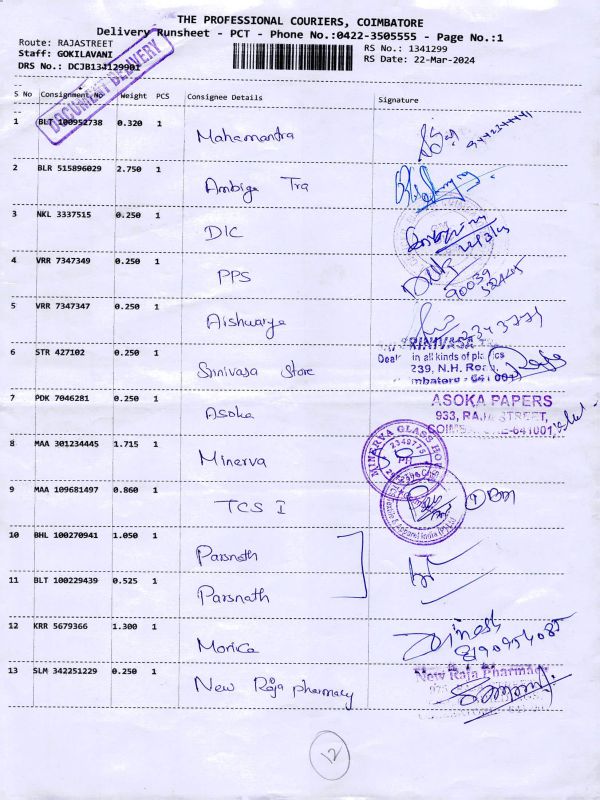 THE PROFESSIONAL COURIERS, COIMBATORE
Delivery Runsheet - PCT - Phone No.:0422-3505555 - Page No.:1
Route: RAJASTREET
RS No.: 1341299
Staff: GOKILAVANI
RS Date: 22-Mar-2024
DRS No.: DCJB134129901
DOCUMENT DELIVERY
S No Consignment No Weight PCS Consignee Details Signature
1 BLT 100952738 0.320 1 Mahamantra
2 BLR 515896029 2.750 1 Ambiga Tra
3 NKL 3337515 0.250 1 DIC
4 VRR 7347349 0.250 1 PPS
5 VRR 7347347 0.250 1 Aishwarya
6 STR 427102 0.250 1 Srinivasa Store
SRINIVASA
in all kinds of
239, N.H. Road,
7 PDK 7046281 0.250 1 Asoka
ASOKA PAPERS
933, RAJA STREET,
8 MAA 301234445 1.715 1 Minerva
MINERVA GLASS HOUSE
2349775
9 MAA 109681497 0.860 1 TCS I
10 BHL 100270941 1.050 Parsnath
11 BLT 100229439 0.525 1 Parsnath
12 KRR 5679366 1.300 1 Morica
Dinesh
8190954085
13 SLM 342251229 0.250 1 New Raja pharmacy
New Raja Pharmacy
12